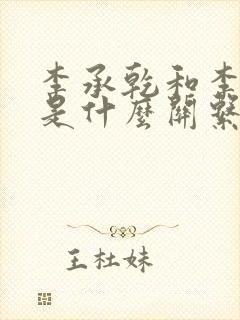 李承乾和李
是什麼關繫
王杜妹